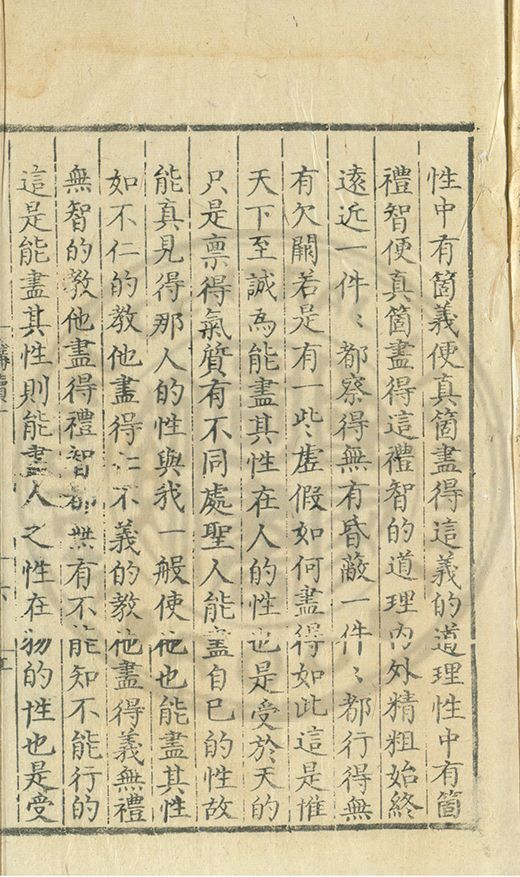 性中有箇義便真箇盡得這義的道理性中有箇
禮智便真箇盡得這禮智的道理內外精粗始終
遠近一件〻都察得無有昏蔽一件〻都行得無
有欠闕若是有一些虛假如何盡得如此這是惟
天下至誠為能盡其性在人的性也是受於天的
只是禀得氣質有不同處聖人能盡自巳的性故
能真見得那人的性與我一般使他也能盡其性
如不仁的教他盡得仁不義的教他盡得義無禮
無智的教他盡得禮智都無有不能知不能行的
這是能盡其性則能盡人之性在物的性也是受